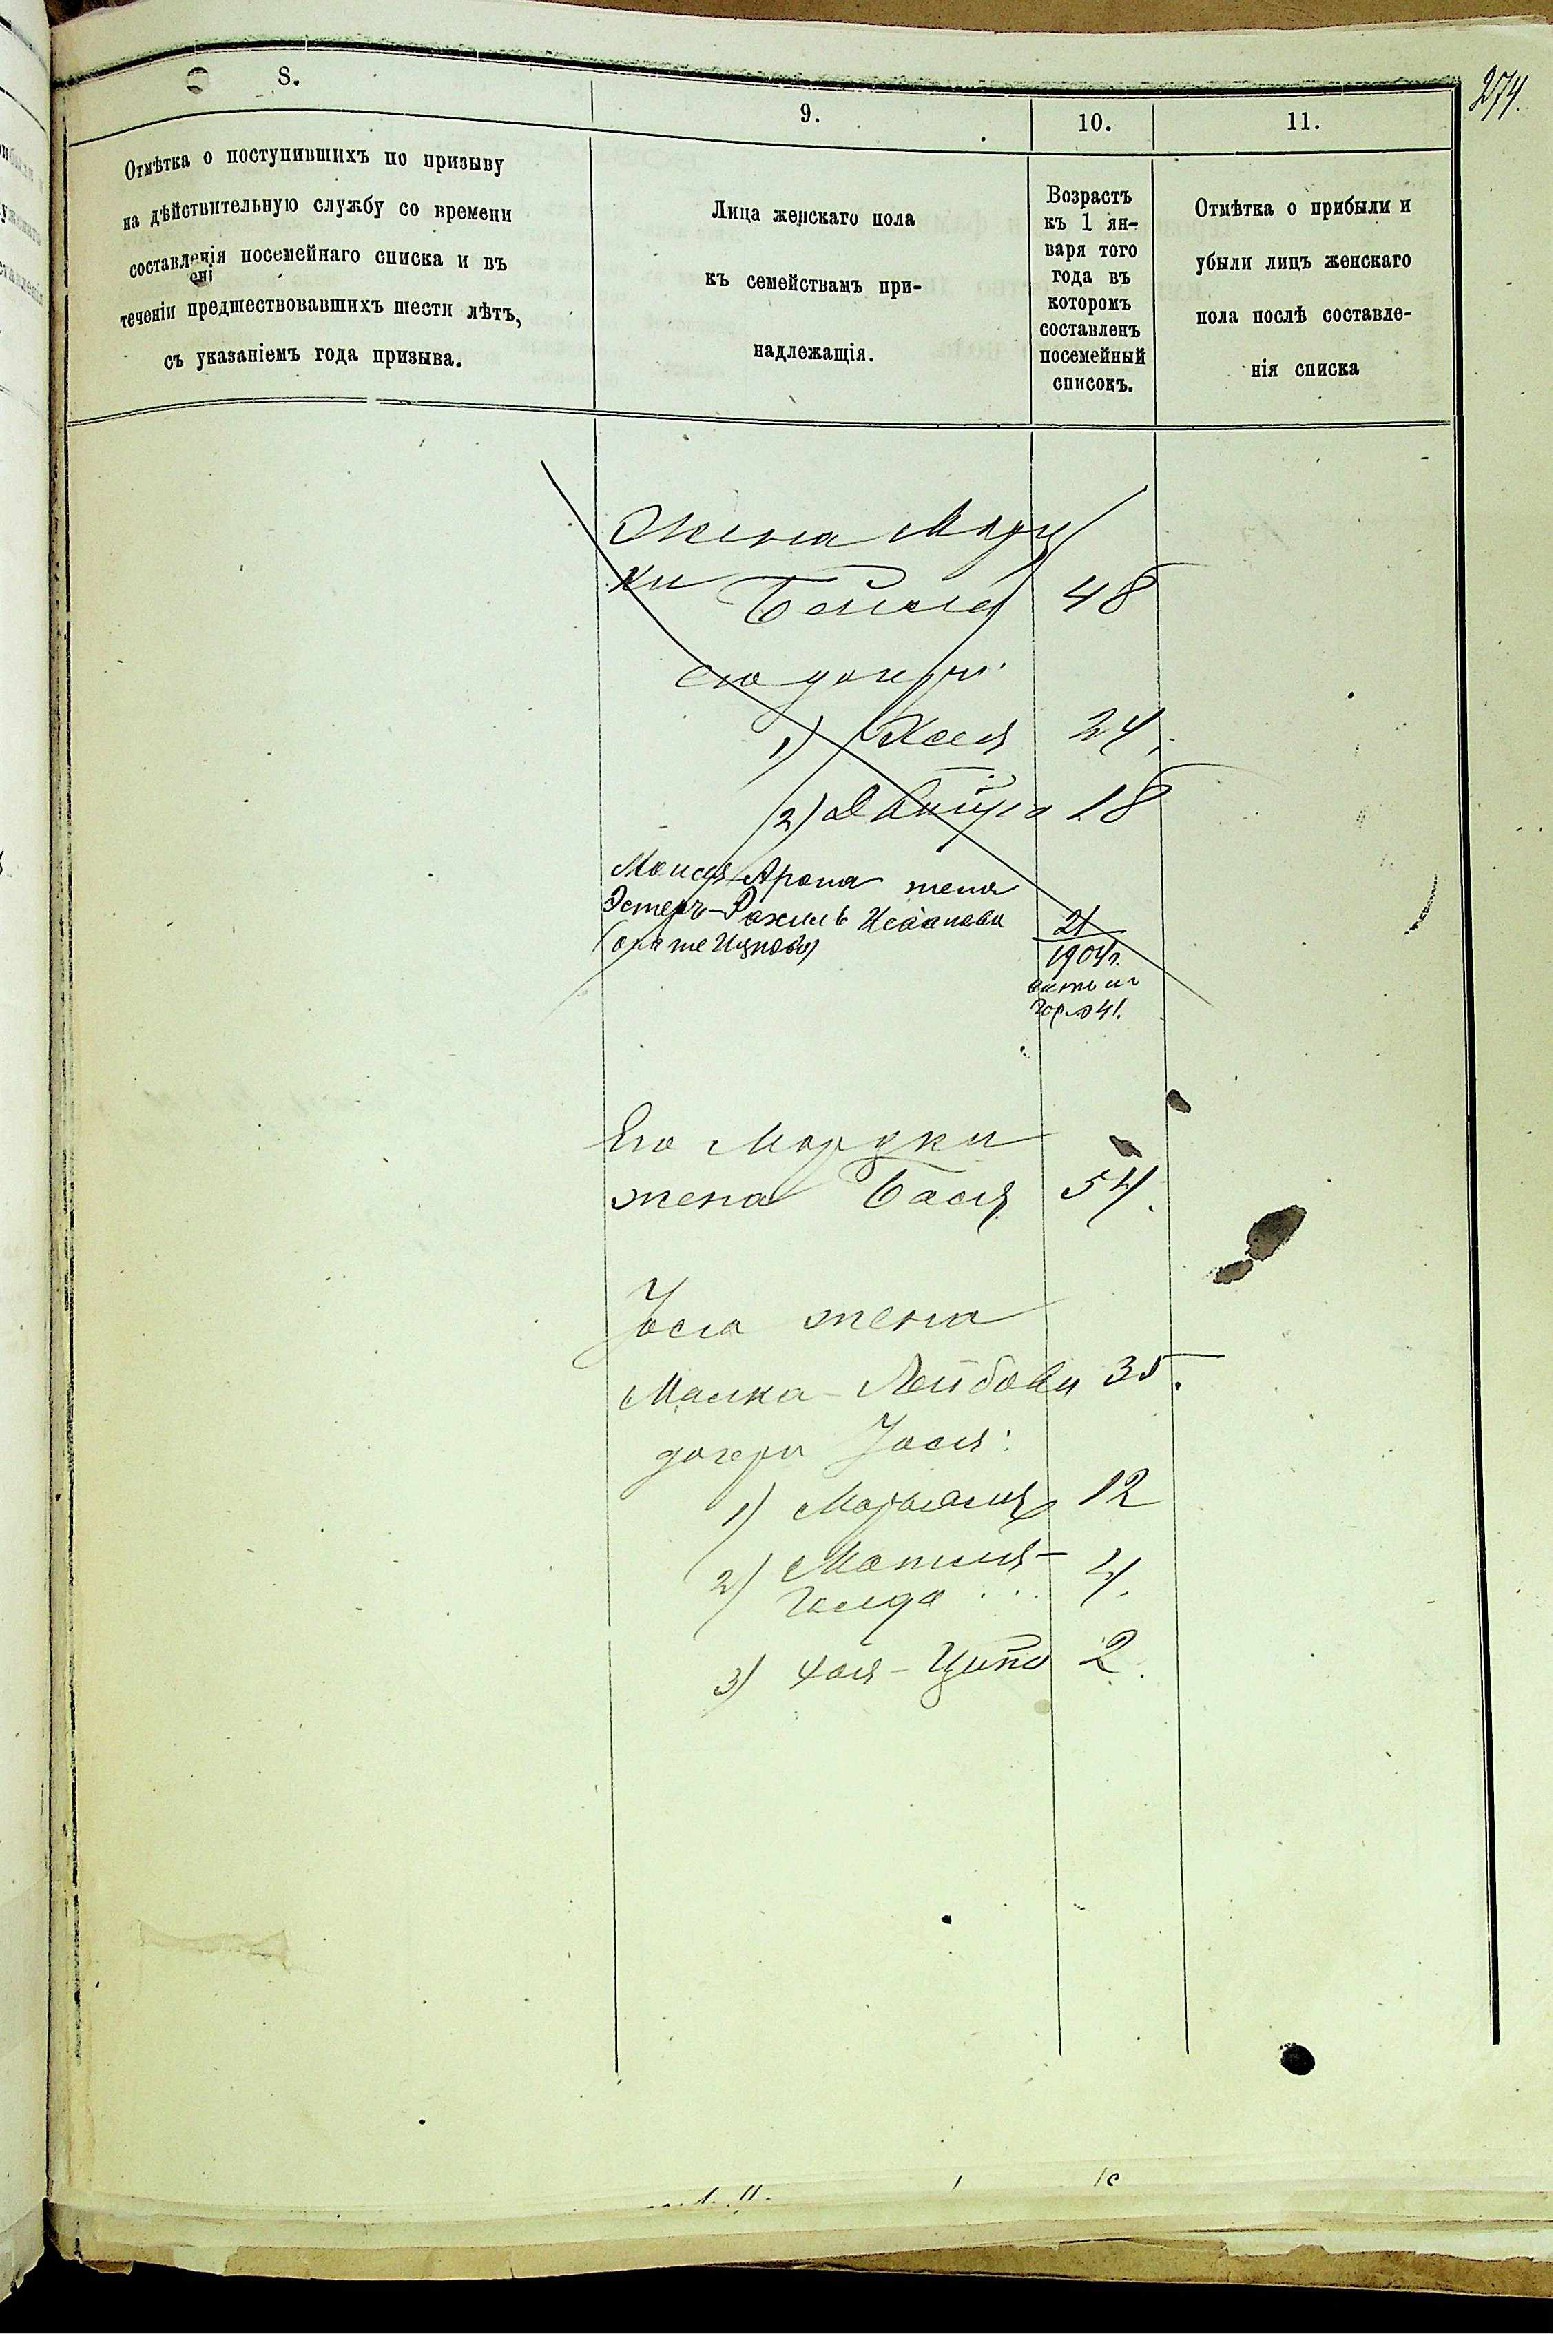 274.
8.
9.
10.
11.
Отмѣтка о поступившихъ по призыву
на дѣйствительную службу со времени
составленія посемейнаго списка и въ
теченіи предшествовавшихъ шести лѣтъ,
съ указаніемъ года призыва.
Лица женскаго пола
къ семействамъ при-
надлежащія.
Возрастъ
къ 1 ян-
варя того
года въ
которомъ
составленъ
посемейный
списокъ.
Отмѣтка о прибыли и
убыли лицъ женскаго
пола послѣ составле-
нія списка
Жена Морд
ки Бейла 48
его дочери:
1) Хася 24.
2) 18
Мовша Арона жена
Эстеръ-Рахиль
(она же Ицкова)
21
1904 г.
41.
Его Мордки
жена Бася 54.
Іосла жена
Малка-Лейбова 35.
дочери Іосля:
1) Марьяся 12
2) Матля-
Голда . . . 4.
3) Хая-Ципа 2.